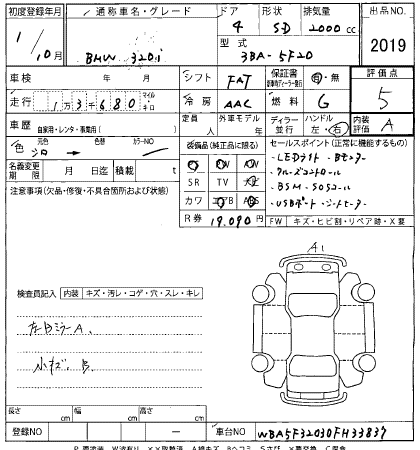 初度登録年月 通称車名・グレード ドア 形状 排気量 出品NO
1/10月 BMW 320i 4 SD 2000cc 2019
型式 3BA-5F20
車検 年 月 シフト FAT 保証書 有・無 評価点
走行 13680 マイル キロ 冷房 AAC 燃料 G 5
車歴 自家用・レンタ・事業用( ) 定員 人 外車モデル 年 ディーラー 並行 ハンドル 左・右 内装評価 A
色 元色 シロ → 色 カラーNO 装備品(純正品に限る) セールスポイント(正常に機能するもの)
名義変更期限 月 日 積載 t
SR TV
カワ エアB ABS
・LEDライト・Bモニター
・クルーズコントロール
・BSM・SOSコール
・USBポート・シートヒーター
注意事項(欠品・修復・不具合箇所および状態) R券 19,090円 FW キズ・ヒビ割・リペア跡・X要
A1
検査員記入 内装 キズ・汚レ・コゲ・穴・スレ・キレ
左Dミラー A、
小キズ、B
長さ cm 幅 cm 高さ cm
登録NO 車台NO WBA5F32030FH33837